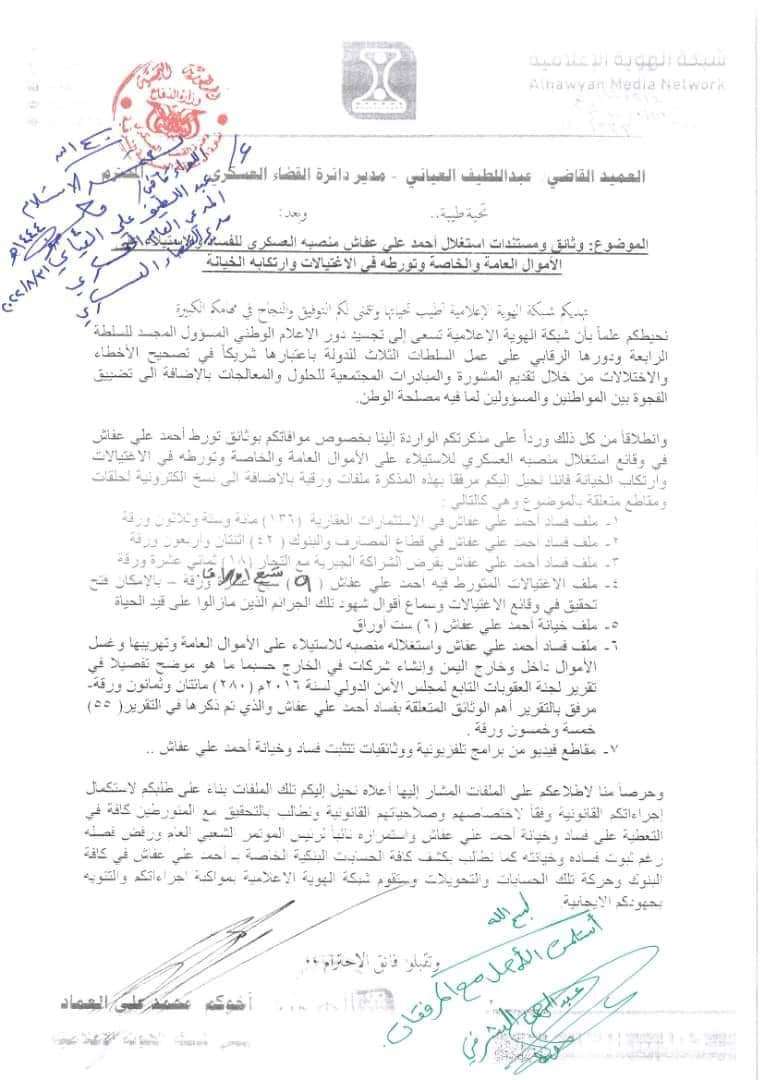 شبكة الهوية الاعلامية
Alhawyah Media Network
العميد القاضي/ عبداللطيف العياني - مدير دائرة القضاء العسكري المحترم
تحية طيبة.. وبعد:
الموضوع: وثائق ومستندات استغلال أحمد علي عفاش منصبه العسكري للفساد والاستيلاء على
الأموال العامة والخاصة وتورطه في الاغتيالات وارتكابه الخيانة
تهديكم شبكة الهوية الإعلامية أطيب تحياتها وتتمنى لكم التوفيق والنجاح في مهامكم الكبيرة
نحيطكم علماً بأن شبكة الهوية الاعلامية تسعى إلى تجسيد دور الاعلام الوطني المسؤول المجسد للسلطة
الرابعة ودورها الرقابي على عمل السلطات الثلاث للدولة باعتبارها شريكاً في تصحيح الأخطاء
والاختلالات من خلال تقديم المشورة والمبادرات المجتمعية للحلول والمعالجات بالاضافة الى تضييق
الفجوة بين المواطنين والمسؤولين لما فيه مصلحة الوطن.
وانطلاقاً من كل ذلك ورداً على مذكرتكم الواردة إلينا بخصوص موافاتكم بوثائق تورط أحمد علي عفاش
في وقائع استغلال منصبه العسكري للاستيلاء على الأموال العامة والخاصة وتورطه في الاغتيالات
وارتكاب الخيانة فاننا نحيل اليكم مرفقا بهذه المذكرة ملفات ورقية بالاضافة الى نسخ الكترونية لحلقات
ومقاطع متعلقة بالموضوع وهي كالتالي:
١- ملف فساد أحمد علي عفاش في الاستثمارات العقارية (١٣٦) مائة وستة وثلاثون ورقة
٢- ملف فساد أحمد علي عفاش في قطاع المصارف والبنوك (٤٢) اثنتان واربعون ورقة
٣- ملف فساد أحمد علي عفاش بفرض الشراكة الجبرية مع التجار (١٨) ثماني عشرة ورقة
٤- ملف الاغتيالات المتورط فيه احمد علي عفاش (٩) تسع اوراق ورقة – بالامكان فتح
تحقيق في وقائع الاغتيالات وسماع أقوال شهود تلك الجرائم الذين مازالوا على قيد الحياة
٥- ملف خيانة أحمد علي عفاش (٦) ست أوراق
٦- ملف فساد أحمد علي عفاش واستغلاله منصبه للاستيلاء على الأموال العامة وتهريبها وغسل
الأموال داخل وخارج اليمن وإنشاء شركات في الخارج حسبما ما هو موضح تفصيلا في
تقرير لجنة العقوبات التابع لمجلس الأمن الدولي لسنة ٢٠١٦م (٢٨٠) مائتان وثمانون ورقة-
مرفق بالتقرير أهم الوثائق المتعلقة بفساد أحمد علي عفاش والذي تم ذكرها في التقرير( ٥٥)
خمسة وخمسون ورقة .
٧- مقاطع فيديو من برامج تلفزيونية ووثائقيات تتثبت فساد وخيانة أحمد علي عفاش ..
وحرصاً منا لاطلاعكم على الملفات المشار إليها أعلاه نحيل إليكم تلك الملفات بناء على طلبكم لاستكمال
إجراءاتكم القانونية وفقاً لاختصاصهم وصلاحياتهم القانونية ونطالب بالتحقيق مع المتورطين كافة في
التغطية على فساد وخيانة أحمد علي عفاش واستمراره نائباً لرئيس المؤتمر الشعبي العام ورفض فصله
رغم ثبوت فساده وخيانته كما نطالب بكشف كافة الحسابات البنكية الخاصة – أحمد علي عفاش في كافة
البنوك وحركة تلك الحسابات والتحويلات وستقوم شبكة الهوية الاعلامية بمواكبة اجراءاتكم والتنويه
بجهودكم الايجابية
وتقبلوا فائق الاحترام،،،
أخوكم محمد علي العماد
بسم الله
أستلمت الأصل مع المرفقات
عبدالرحمن الشرفي
وزارة الدفاع
عبداللطيف علي العياني
المدعي العام العسكري
مدير القضاء العسكري
١٤٤٤هـ
٢٠٢٢/٨/٣١